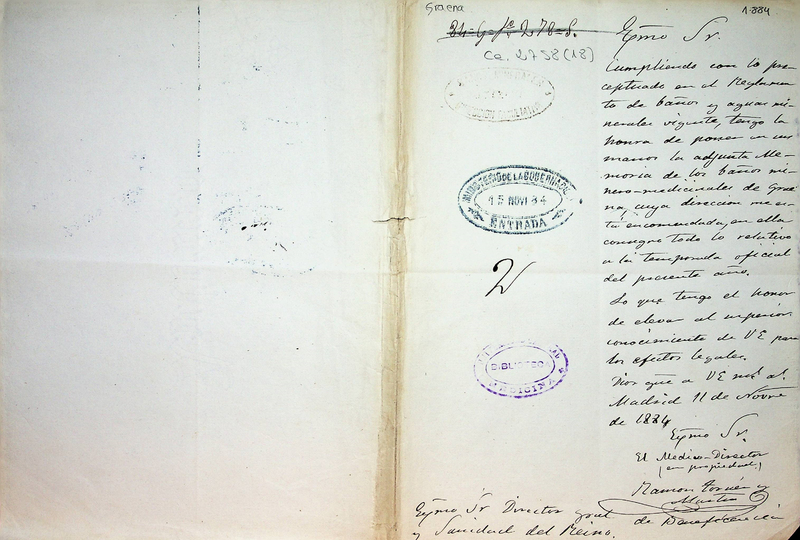 Graena
1884
84-G-fª 278-S.
Ca. 2758 (18)
MINISTERIO DE LA GOBERNACION
15 NOV 84
ENTRADA
2
BIBLIOTECA
MEDICINA
Exmo Sr.
Cumpliendo con lo pre-
ceptuado en el Reglamen
to de baños y aguas mi-
nerales vigente, tengo la
honra de poner en sus
manos la adjunta Me-
moria de los baños mi-
nero-medicinales de Grae
na, cuya direccion me es-
tá encomendada, en ella
consigno todo lo relativo
a la temporada oficial
del presente año.
Lo que tengo el honor
de elevar al superior
conocimiento de VE para
los efectos legales.
Dios gue a VE ms as.
Madrid 11 de Novre
de 1884
Exmo Sr.
El Medico-Director
(en propiedad)
Ramon
Exmo Sr Director gral de Beneficencia
y Sanidad del Reino.